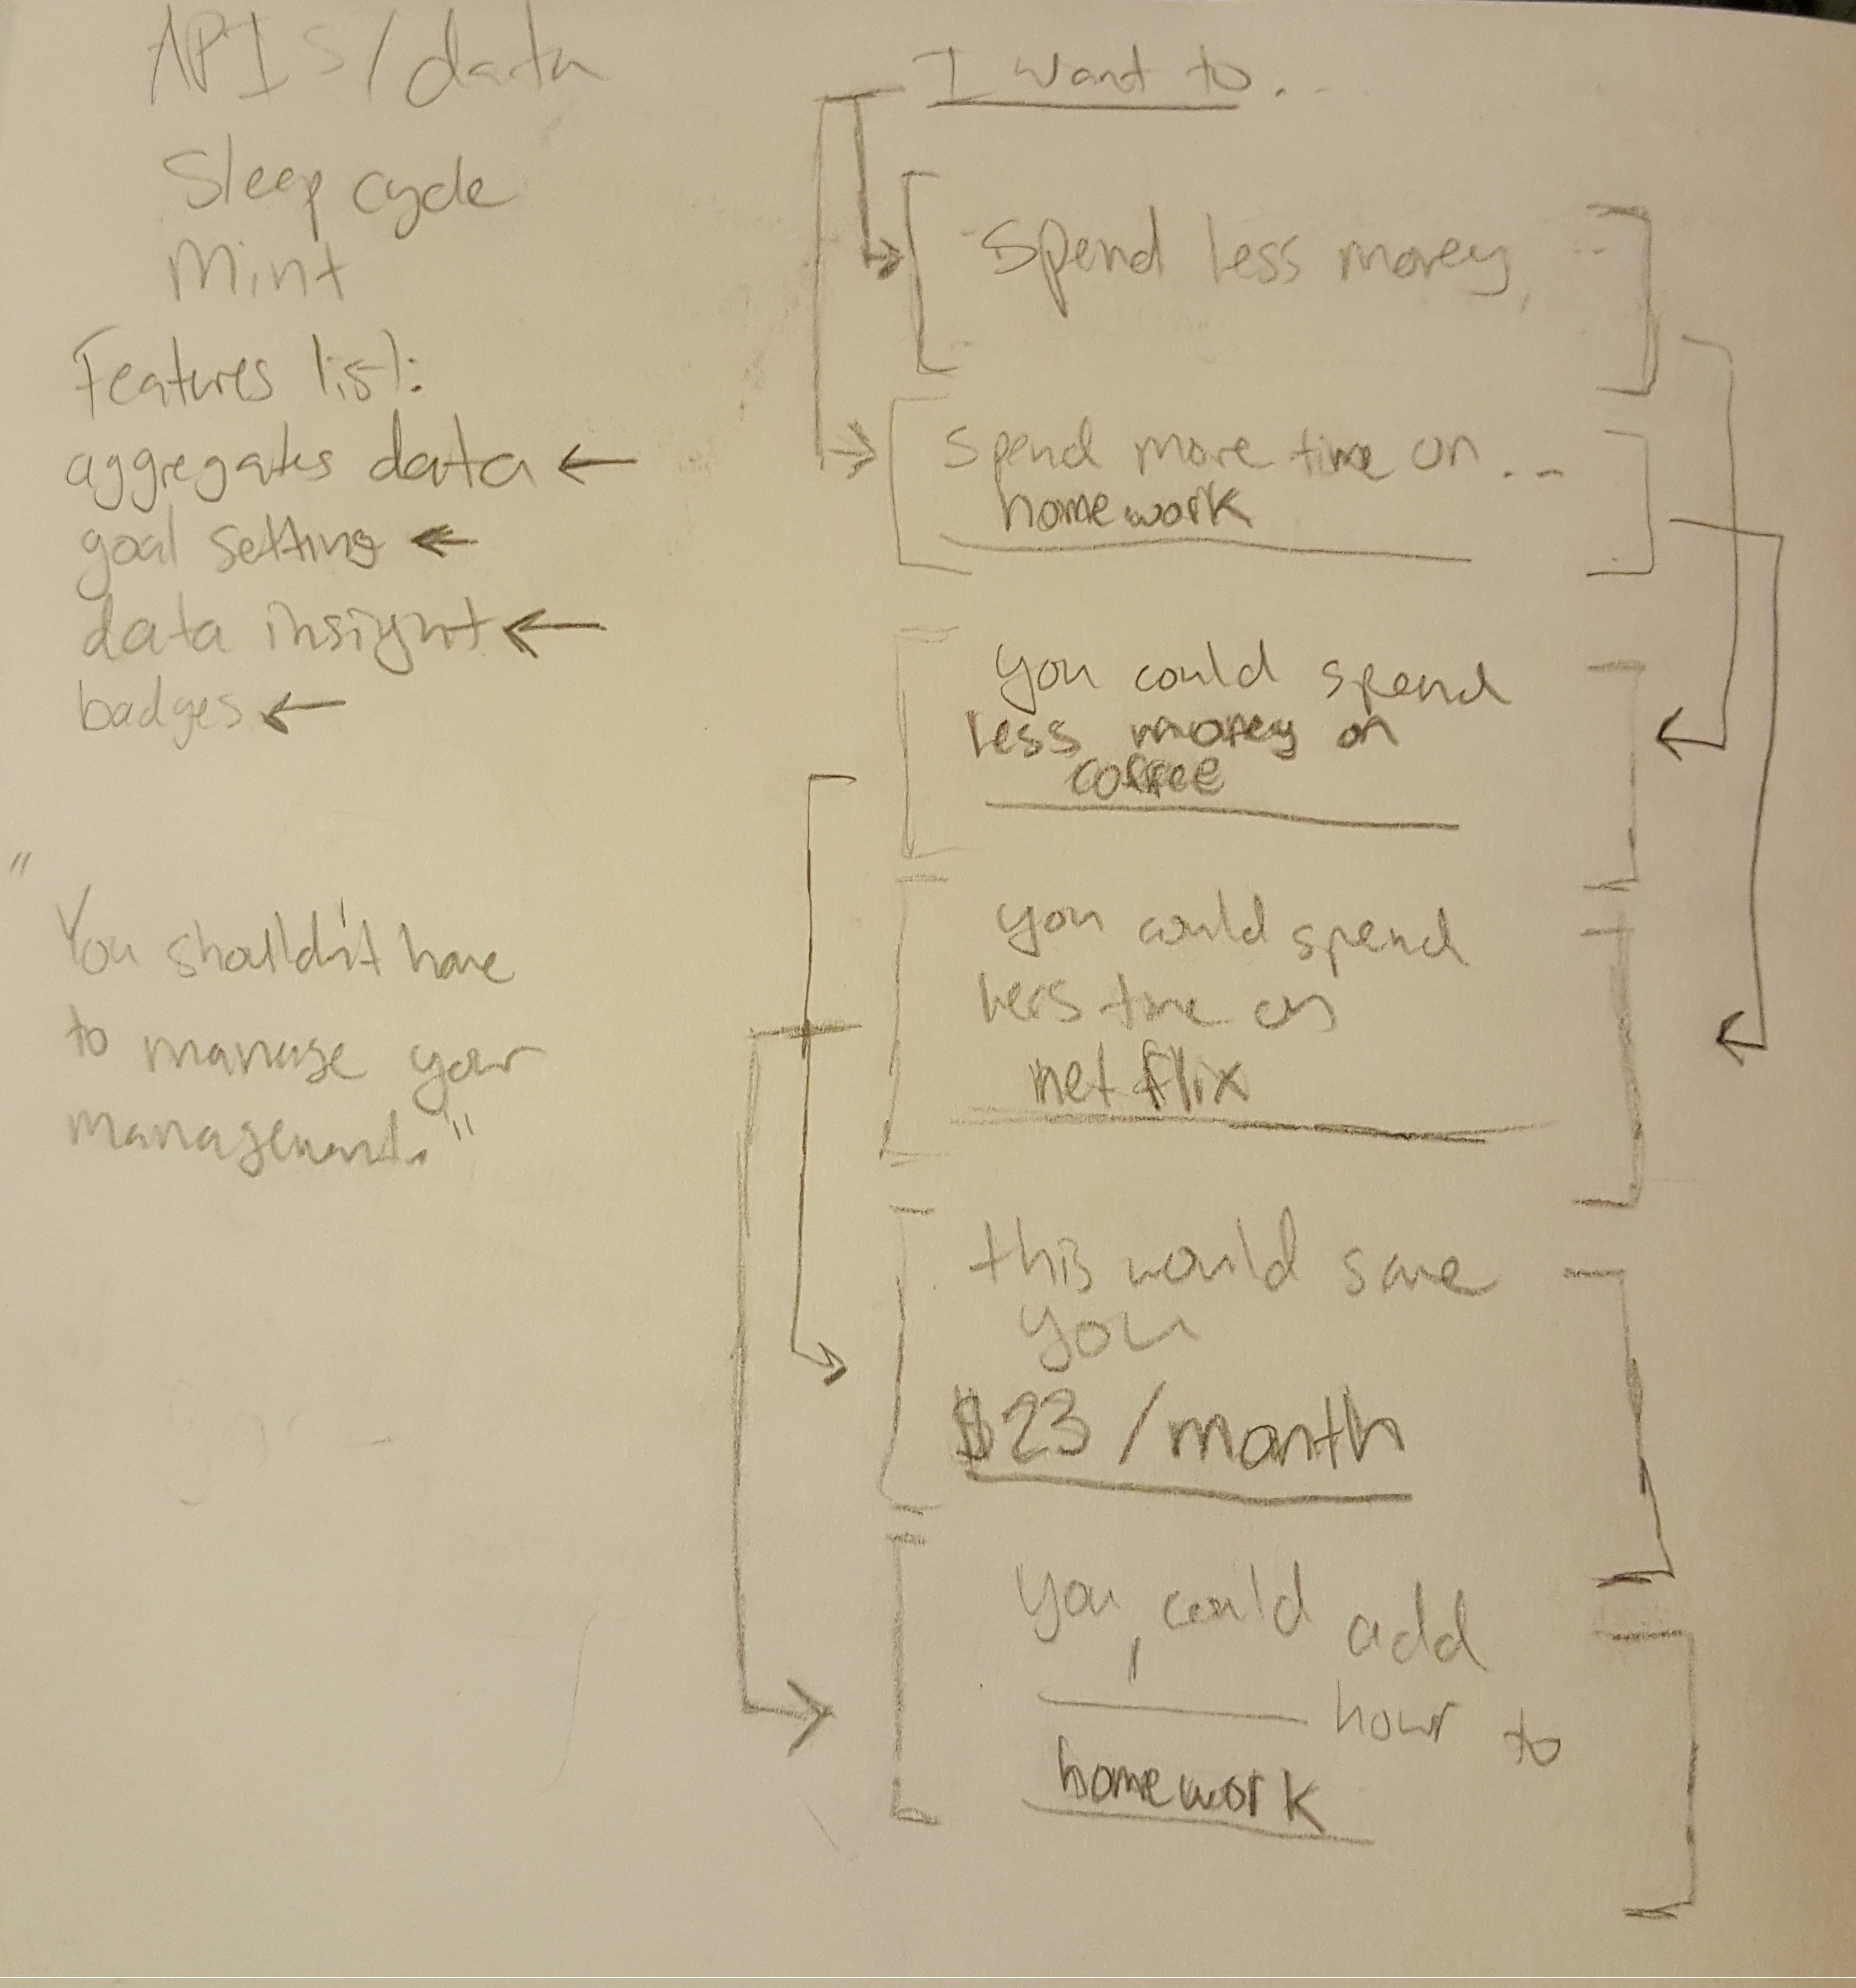 APIs/data
Sleep cycle
Mint
Features list:
aggregates data
goal setting
data insight
badges
"You shouldn't have
to manage your
management."
I want to...
Spend less money
Spend more time on...
homework
you could spend
less money on
coffee
you could spend
less time on
netflix
this would save
you
$23/month
you could add
hour to
homework